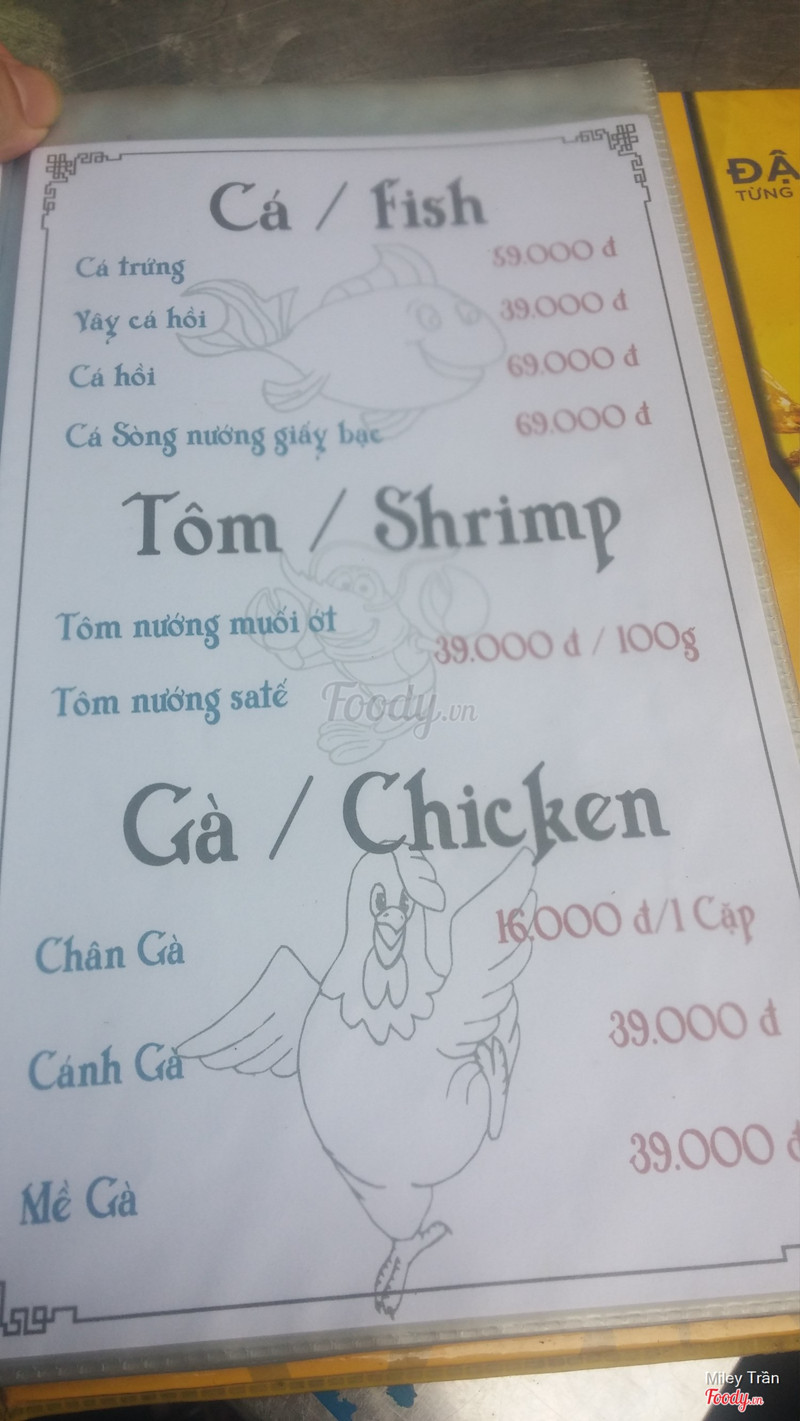 Cá / Fish
Cá trứng 59.000 đ
Vây cá hồi 39.000 đ
Cá hồi 69.000 đ
Cá Sòng nướng giấy bạc 69.000 đ
Tôm / Shrimp
Tôm nướng muối ớt
39.000 đ / 100g
Tôm nướng satế
Foody.vn
Gà / Chicken
Chân Gà 16.000 đ/1 Cặp
Cánh Gà 39.000 đ
Mề Gà 39.000 đ
ĐẬ
TỪNG
Miley Trần
Foody.vn